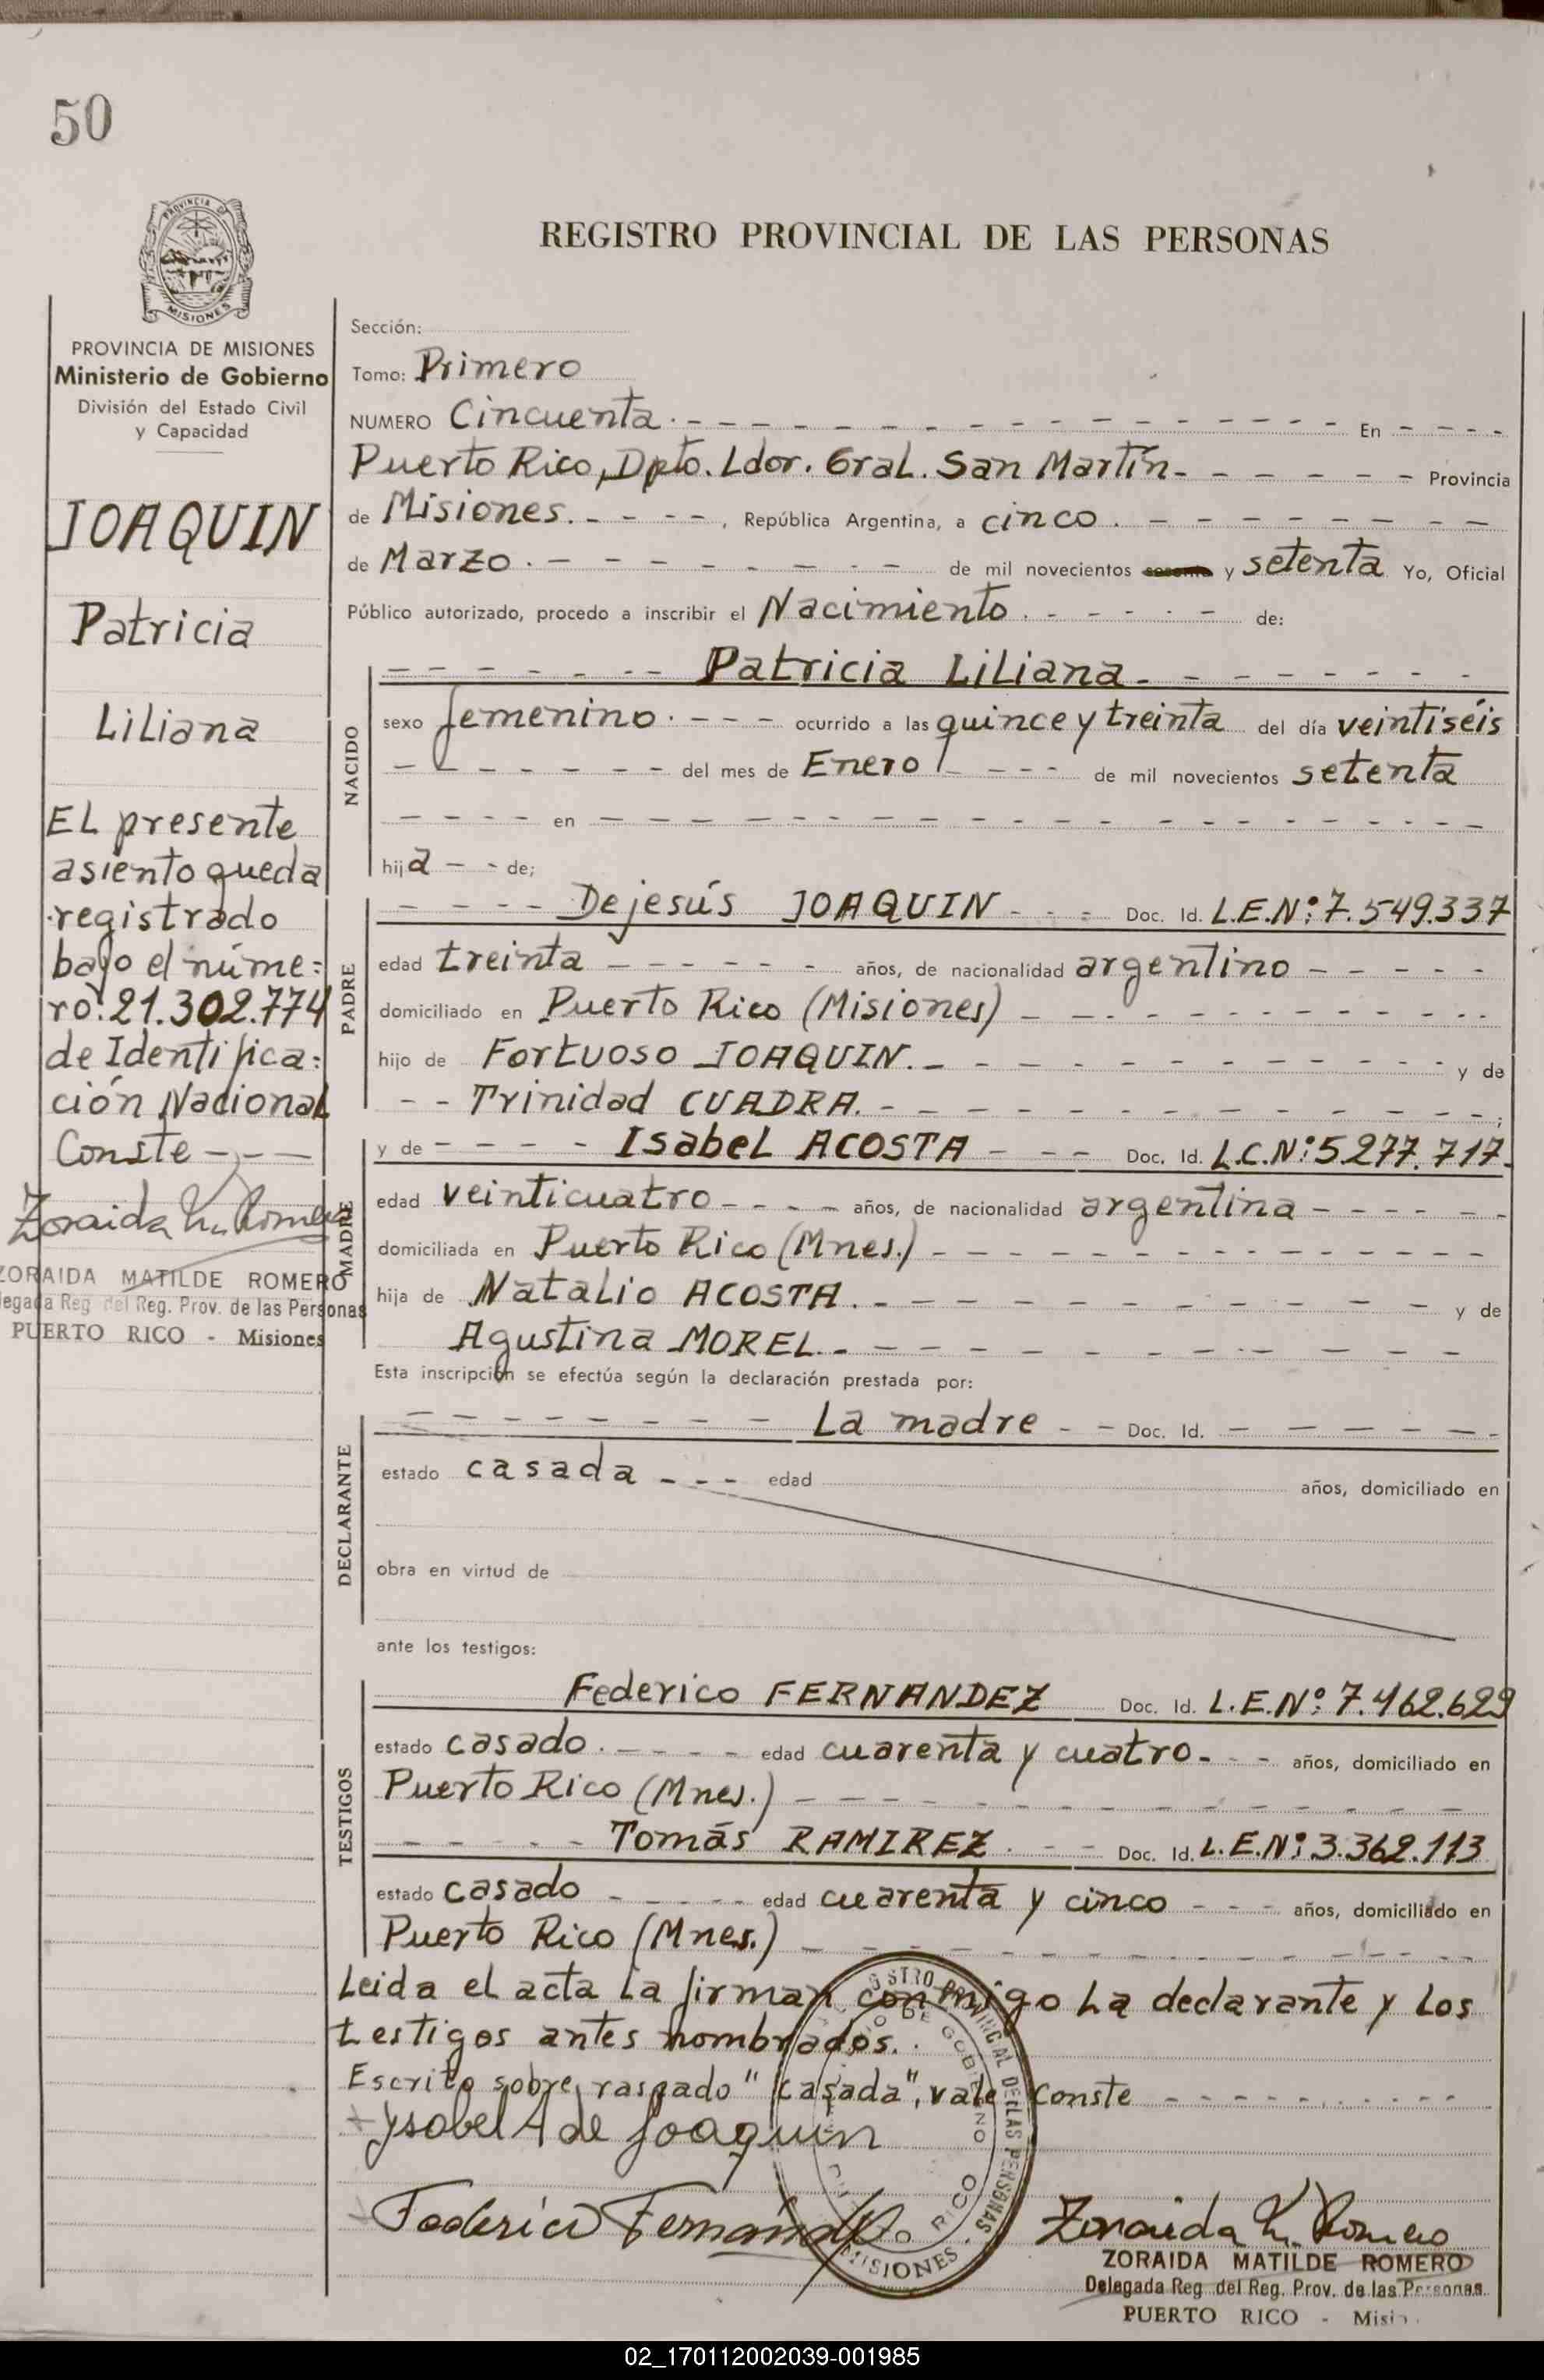 50
PROVINCIA DE
MISIONES
REGISTRO PROVINCIAL DE LAS PERSONAS
PROVINCIA DE MISIONES
Ministerio de Gobierno
División del Estado Civil
y Capacidad
JOAQUIN
Patricia
Liliana
EL presente
asiento queda
registrado
bajo el núme=
ro: 21.302.774
de Identifica=
ción Nacional
Conste - - -
Zoraida M. Romero
ZORAIDA MATILDE ROMERO
Delegada Reg del Reg. Prov. de las Personas
PUERTO RICO - Misiones
Sección:
Tomo: Primero
NUMERO Cincuenta. - - - En - - - -
Puerto Rico, Dpto. Ldor. Gral. San Martín - - - Provincia
de Misiones. - - - -, República Argentina, a cinco. - - -
de Marzo. - - - de mil novecientos sesenta y setenta Yo, Oficial
Público autorizado, procedo a inscribir el Nacimiento. - - - de:
NACIDO
- - - Patricia Liliana - - -
sexo femenino. - - - ocurrido a las quince y treinta del día veintiséis
- - - del mes de Enero - - - de mil novecientos setenta
- - - - en - - -
hija - - de;
PADRE
- - - - Dejesús JOAQUIN - - - Doc. Id. L.E.Nº: 7.549.337
edad treinta - - - años, de nacionalidad argentino - - -
domiciliado en Puerto Rico (Misiones) - - -
hijo de Fortuoso JOAQUIN. - - - y de
- - Trinidad CUADRA. - - - ;
MADRE
y de - - - - Isabel ACOSTA - - - Doc. Id. L.C.Nº: 5.277.717.
edad veinticuatro - - - - años, de nacionalidad argentina - - -
domiciliada en Puerto Rico (Mnes.) - - -
hija de Natalio ACOSTA. - - - y de
Agustina MOREL. - - -
Esta inscripción se efectúa según la declaración prestada por:
DECLARANTE
- - - La madre - - Doc. Id. - - -
estado casada - - - edad años, domiciliado en
obra en virtud de
ante los testigos:
TESTIGOS
Federico FERNANDEZ Doc. Id. L.E.Nº: 7.462.629
estado casado. - - - - edad cuarenta y cuatro - - - años, domiciliado en
Puerto Rico (Mnes.) - - -
- - - Tomás RAMIREZ. - - Doc. Id. L.E.Nº: 3.362.113
estado casado - - - edad cuarenta y cinco - - - años, domiciliado en
Puerto Rico (Mnes.) - - -
Leida el acta la firman conmigo La declarante y Los
testigos antes nombrados.
Escrito sobre raspado "casada", vale Conste - - -
Ysabel A de Joaquin
Federico Fernández
Zoraida M. Romero
ZORAIDA MATILDE ROMERO
Delegada Reg del Reg. Prov. de las Personas
PUERTO RICO - Misio
REGISTRO PROVINCIAL DE LAS PERSONAS - MISIONES
DE GOBIERNO
PUERTO RICO
02_170112002039-001985